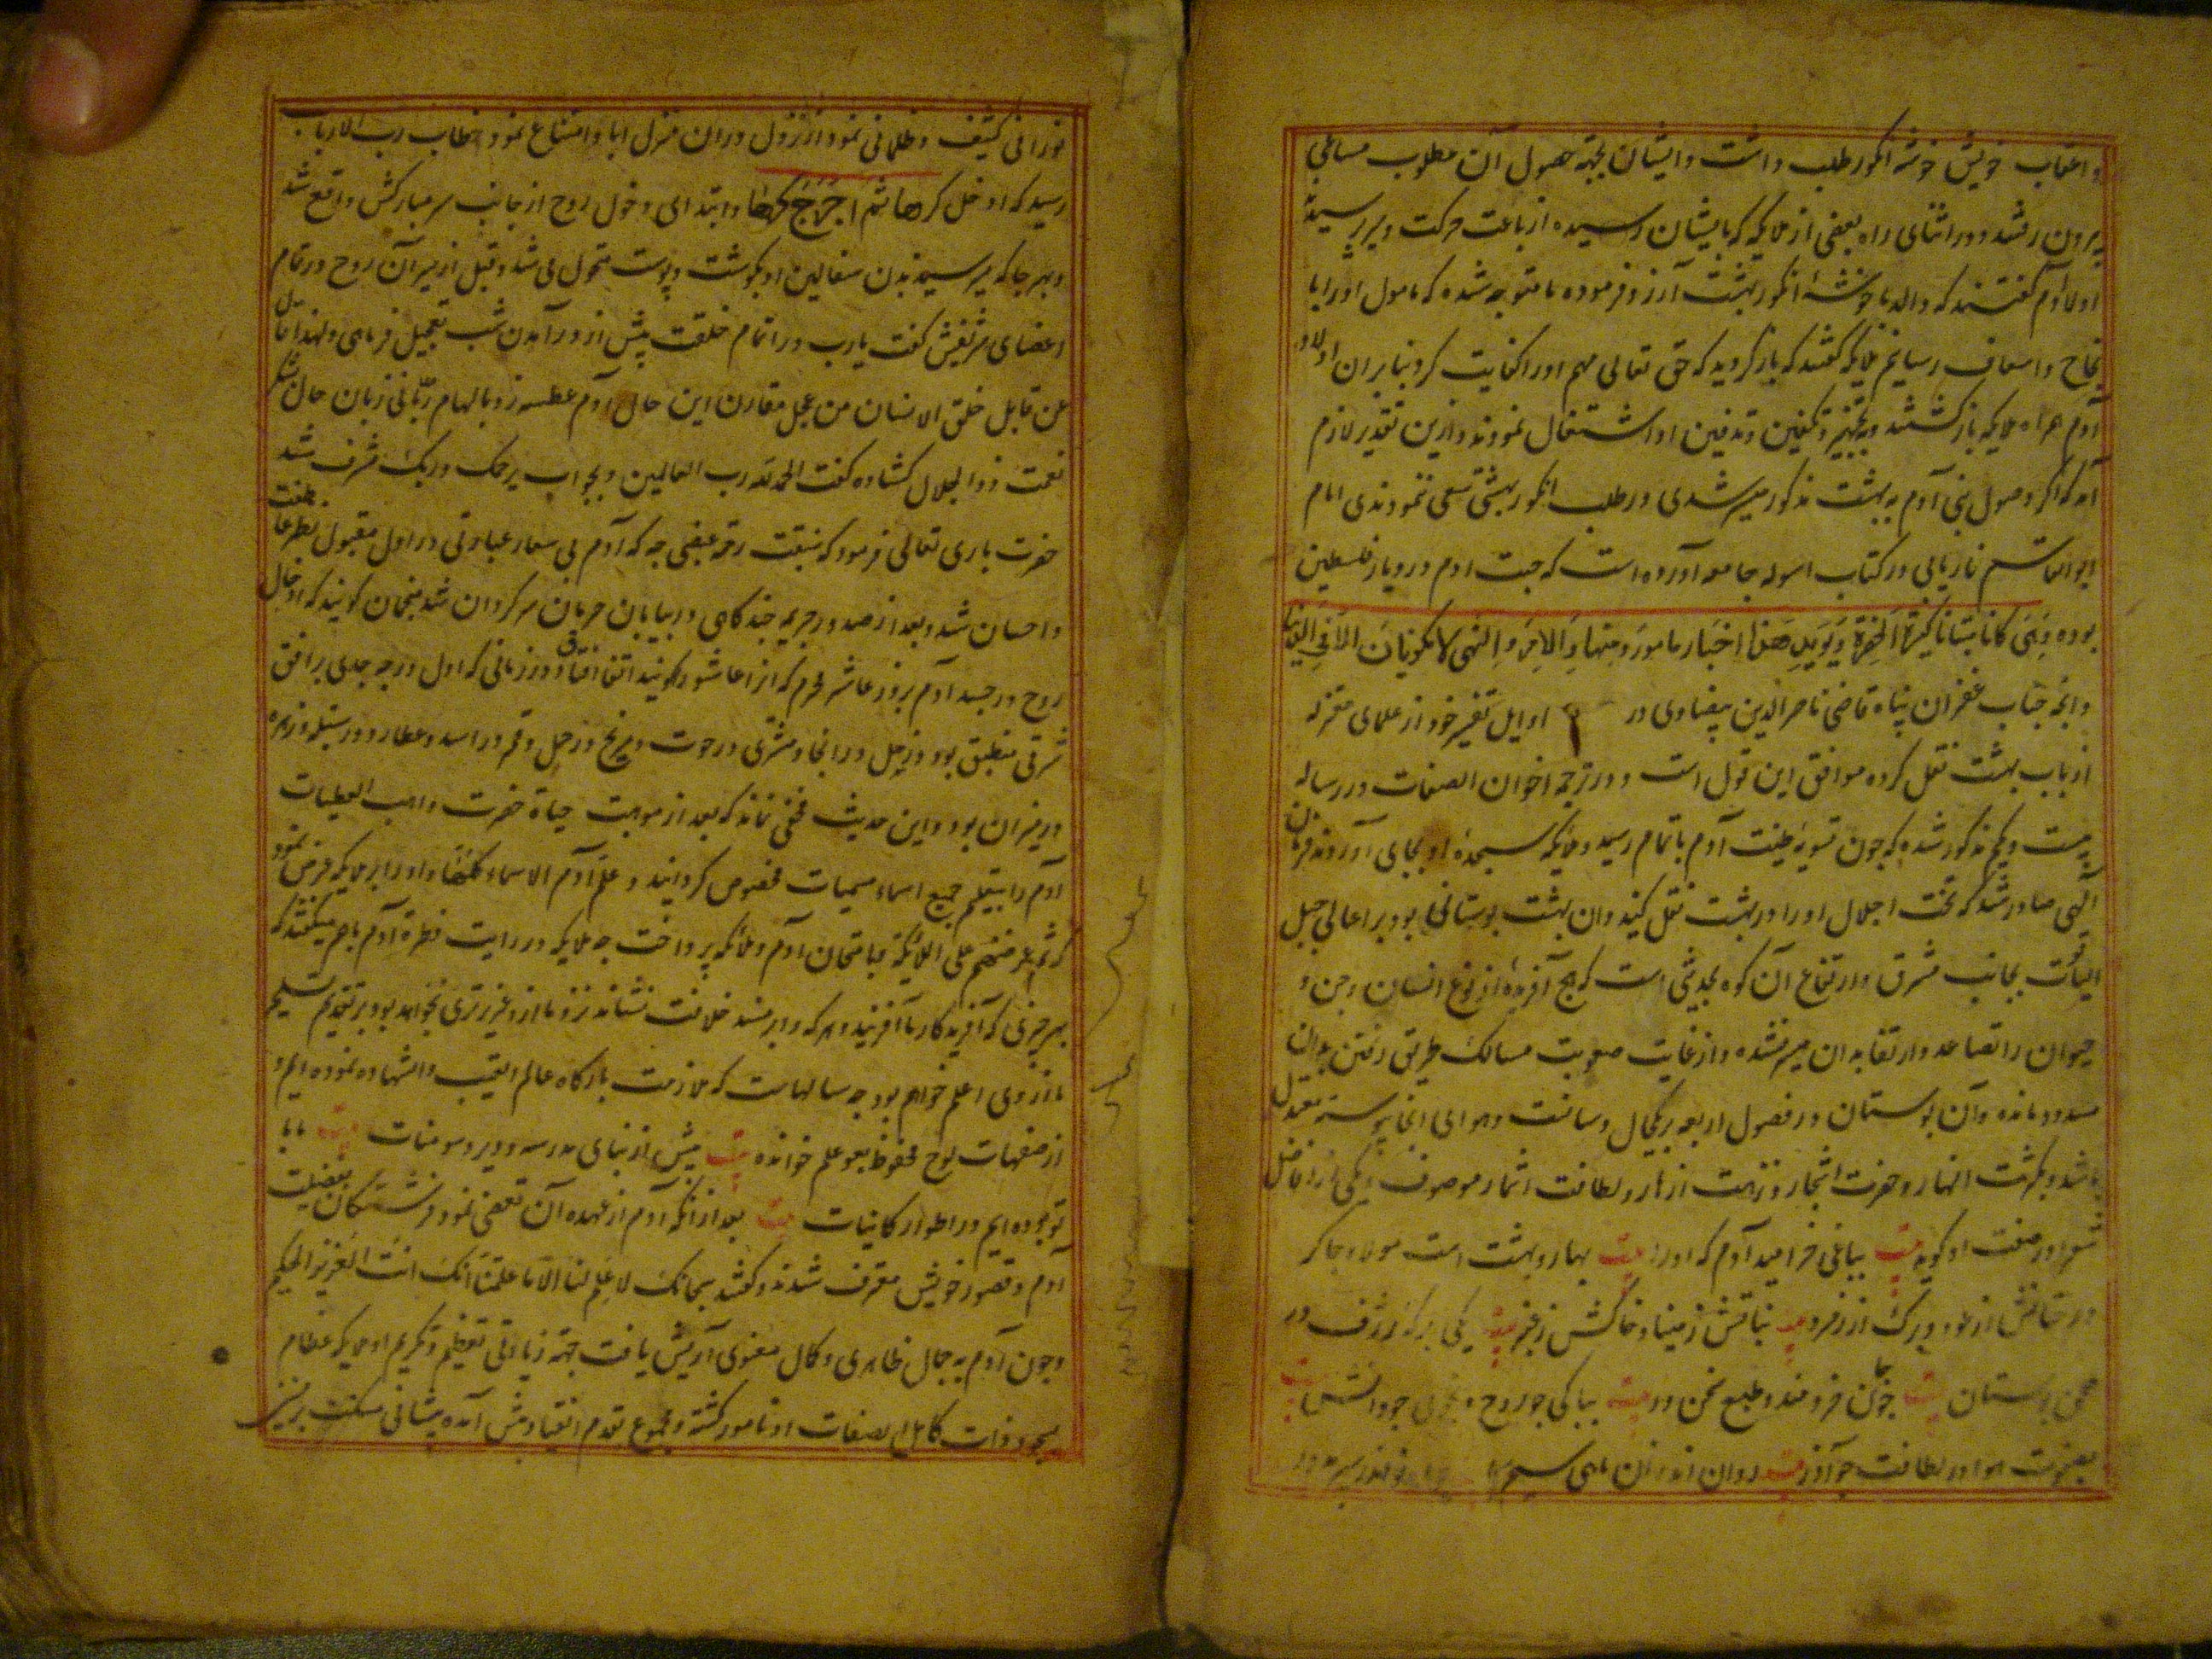 و اعقاب خویش خوشه انکور طلب داشت و ایشان بجهة حصول آن مطلوب مساعی
بیرون رفتند و در اثنای راه بعضی از ملایکه که بایشان رسیده از باعث حرکت و پرسیدند
اولاد آدم گفتند که والد ما خوشهٔ انکور بهشت آرزو فرموده ما متوجه شده که مامول او را با
نجاح و اسعاف رسانیم ملایکه گفتند که باز کردید که حق تعالی مهم او را کفایت کرد بنابران اولاد
آدم همراه ملایکه باز کشتند و بتجهیز و تکفین و تدفین او اشتغال نمودند و ازین تقدیر لازم
آمد که اگر وصول بنی آدم به بهشت مذکور میسر نشدی در طلب انکور بهشتی سعی ننمودندی امام
ابو القاسم در کتاب اسوله جامعه آورده است که جنت ادم در دیار فلسطین
بوده
و آنچه جناب غفران پناه قاضی ناصرالدین بیضاوی در اوایل تفسیر خود از علمای معتزله
از باب بهشت نقل کرده موافق این قول است و در ترجمه اخوان الصفا در رساله
بیست و یکم مذکور شده که چون تسویه طینت آدم باتمام رسید و ملایکه سجدهٔ او بجای آوردند فرمان
آلهی صادر شد که تخت اجلال او را در بهشت نقل کنید و ان بهشت بوستانی بود بر اعالی جبل
الیاقوت بجانب مشرق و ارتفاع آن کوه بحدیثی است که هیچ آفریدهٔ از نوع انسان و جن و
حیوان را تصاعد و ارتقا بدان میسر نشده و از غایت صعوبت مسالک طریق رفتن بدان
مسدود مانده و آن بوستان در فصول اربعه بر یکحال و سانست و هوای انجا پیوسته معتدل
باشد و بکثرت انهار و خضرت اشجار و نزهت ازهار و لطافت اثمار موصوف و یکی از افاضل
شعرا در صفت او کوید بیت بباغی خرامید آدم که او را بیت بهار و بهشت است مولا و چاکر
درختانش از عود و برک از زمرد بیت نباتش ز مینا و خاکش ز عنبر بیت یکی برکه ژرف در
صحن بوستان بیت چو جان خردمند و طبع سخن ور بیت بپاکی چو روح و چو دانش بیت
بصفوت هوا و در لطافت چو آذر بیت روان اندران ماهی سیم
نورانی کثیف و ظلمانی نمود از نزول دران منزل ابا و امتناع نمود خطاب رب الارباب
رسید که ادخل کرها ثم اخرج کرها و ابتدای دخول روح از جانب سر مبارکش واقع شد
و بهر جا که میرسید بدن سفالین او بکوشت و پوست متحول می شد و قبل از سریان روح در تمام
اعضای شریفش گفت یا رب در اتمام خلقت پیش از در آمدن شب تعجیل فرمای و لهذا قال
من قایل خلق الانسان من عجل مقارن این حال آدم عطسه زد بالهام ربانی زبان حال بشکر
نعمت ذو الجلال کشاده کفت الحمد لله رب العالمین و بجواب یرحمک ربک مشرف شد
حضرت باری تعالی فرمود که سبقت رحمتی غضبی چه که آدم بی سعار عبادتی در اول مقبول نظر عاطفت
و احسان شد و بعد از صدور جریمه چند کاهی در بیابان حرمان سرکردان شد منجمان کویند که ادخال
روح در جسد آدم بروز عاشر محرم که از اعاشورا کویند اتفاق افتاد در زمانی که اول درجه جدی بر افق
شرقی منطبق بود و زحل در انجا و مشتری در حوت و مریخ در حمل و قمر در اسد و عطارد در سنبله و زهره
در میزان بود و این حدیث مخفی نماند که بعد از موهبت حیاة حضرت واهب العطیات
آدم را بتعلیم جمیع اسماء مسمیات مخصوص کردانید و علم آدم الاسماء کلها و او را بر ملایکه عرض نمود
که ثم عرضهم علی الملائکة بامتحان آدم و ملائکه پرداخت چه ملایکه در بدایت فطرة آدم باهم میکفتند که
بهر چیزی که آفریدکار ما آفریند و هر که را بر مسند خلافت نشاند نزد ما از وی عزیزتری نخواهد بود بر تقدیر تسلیم
ما از وی اعلم خواهیم بود چه سالهاست که ملازمت بارکاه عالم الغیب و الشهاده نموده ایم و
از صفحات لوح محفوظ علم خوانده بیت پیش از بنای مدرسه و دیر و سومنات بیت ما با
تو بوده ایم در اطوار کائنات بیت بعد از آنکه آدم از عهده آن تفصی نمود فرشتکان بفضیلت
آدم و قصور خویش معترف شدند و گفتند سبحانک لا علم لنا الا ما علمتنا انک انت العزیز الحکیم
و چون آدم به جمال ظاهری و کمال معنوی آرایش یافت جهة زیادتی تعظیم و تکریم او ملایکه عظام
بسجود ذات کامل صفات او مامور کشته و بمجموع بقدم انقیاد پیش آمده پیشانی مسکنت بر زمین